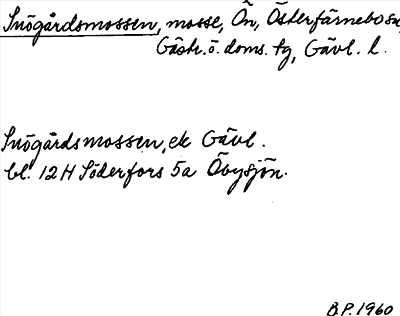 Snögårdsmossen, mosse, Ön, Österfärnebo sn,
Gästr. ö. doms. tg, Gävl. l.
Snögårdsmossen, ek Gävl.
bl. 12H Söderfors 5a Öbysjön.
B.P. 1960